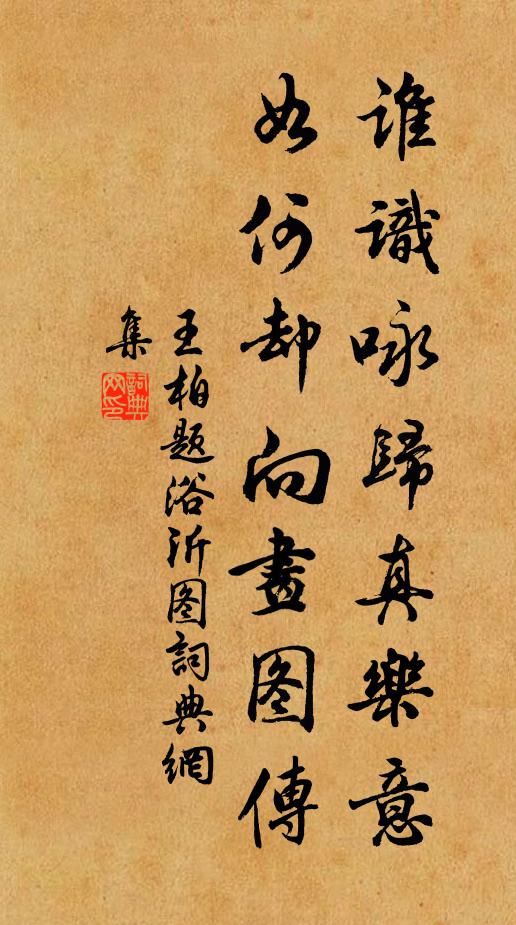 誰識咏歸真樂意
如何却向畫图傳
王柏題浴沂图詞典網
集
詞典网印